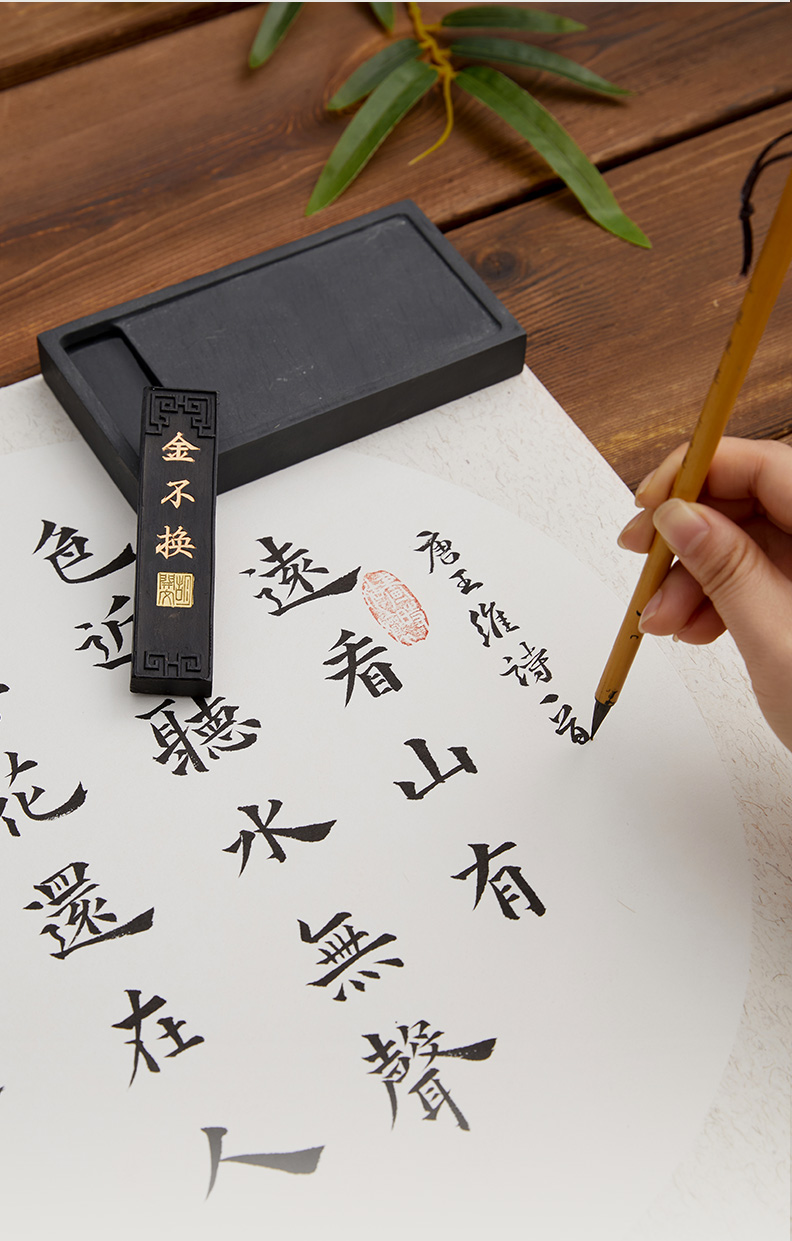 唐王維詩一首
遠看山有
色近聽水無聲
花還在人
金不换